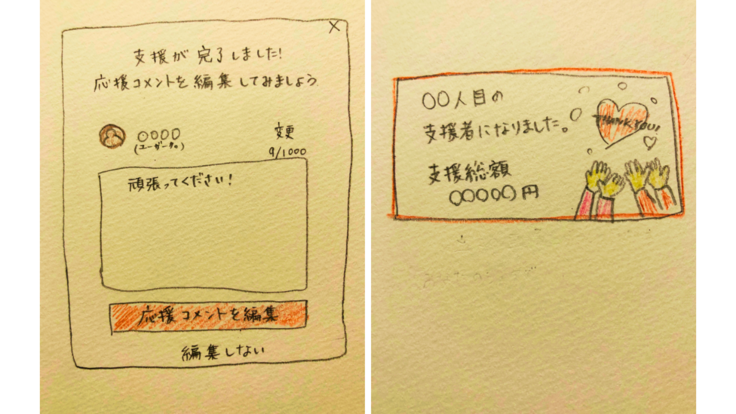 ×
支援が完了しました!
応援コメントを編集してみましょう
○○○○
(ユーザー名)
変更
9/1000
頑張ってください!
応援コメントを編集
編集しない
○○人目の
支援者になりました。
THANK YOU!
支援総額
○○○○○円